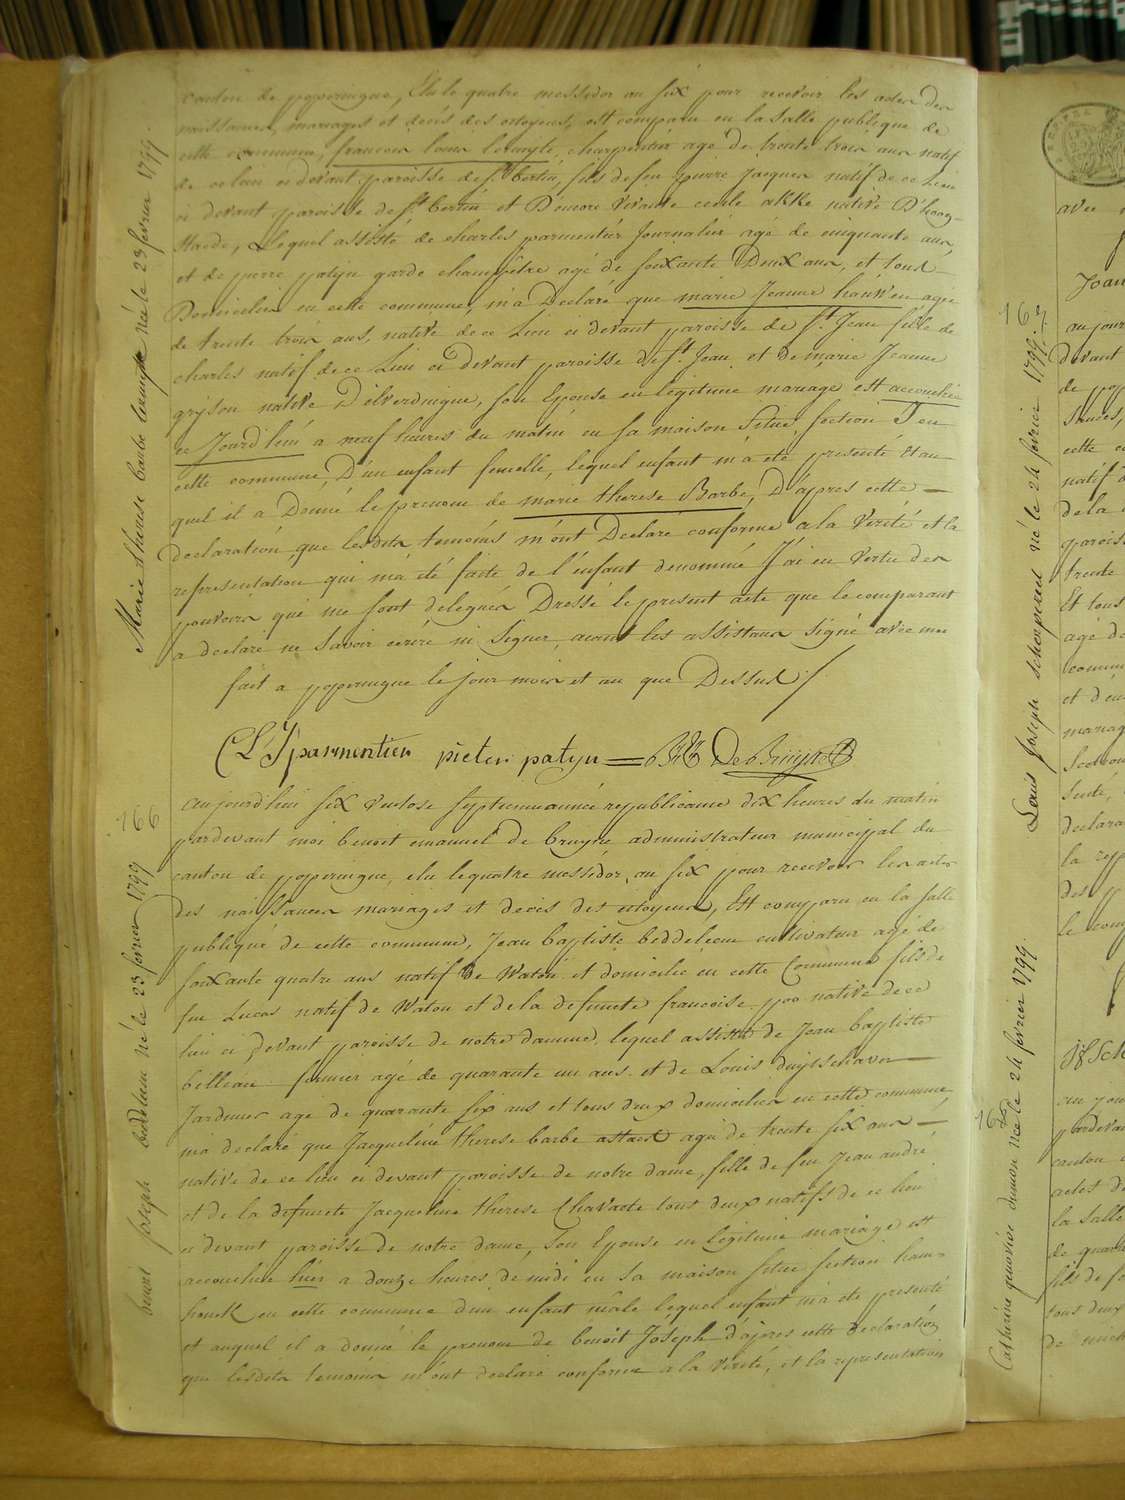 canton de poperingue, Elu le quatre messidor an six pour recevoir les actes des
naissances, mariages et décés des citoyens, est comparu en la salle publique de
cette commune, francois louis charpentier agé de trente trois ans natif
de ce lieu ci devant paroisse de st. bertin, fils de feu pierre Jacques natif de ce Lieu
ci devant paroisse de st. bertin et D'encore vivante cecile akke native D'hoog-
staede, Lequel assisté de charles parmentier Journalier agé de cinquante ans
et de pierre patyn garde champêtre agé de soixante Deux ans, et tous
Domiciliés en cette commune, m'a Declaré que marie Jeanne hauw'en agée
de trente trois ans, native de ce Lieu ci devant paroisse de st. Jean fille de
charles natif de ce Lieu ci Devant paroisse de st. Jean et de marie Jeanne
gryson native D'elverdingue, son Epouse en légitime mariage est accouchée
ce Jourd'hui a neuf heures du matin en sa maison Situé, section en
cette commune, D'un enfant femelle, lequel enfant m'a été presenté et au
quel il a Donné le prenom de marie therese Barbe, D'apres cette
declaration que lesdits temoins m'ont Declaré conforme a la Verité et la
representation qui m'a été faite de l'enfant denommé J'ai en vertu des
pouvoirs qui me sont delegués Dressé le present acte que le comparant
a declaré ne Savoir ecrire ni Signer, aiant les assistans Signé avec moi
fait a poperingue le jour mois et an que Dessus
C L J parmentier pieter patyn = De Bruyne
Marie therese barbe née le 23 fevrier 1799
aujourd'hui six ventose septieme année republicaine dix heures du matin
pardevant moi benoit emanuel de bruyne administrateur municipal du
canton de poperingue, elu le quatre messidor, an six pour recevoir les actes
des naissances mariages et deces des citoyens, Est comparu en la salle
publique de cette commune, Jean baptiste beddeleem cultivateur agé de
soixante quatre ans natif de Watou et domicilié en cette Commune fils de
feu Lucas natif de Watou et de la defuncte francoise poo native de ce
lieu ci devant paroisse de notre damme, lequel assisté de Jean baptiste
billiau fermier agé de quarante un ans et de Louis duysschaver
Jardinier agé de quarante six ans et tous deux domiciliés en cette commune,
m'a declaré que Jacqueline therese barbe attack agée de trente six ans
native de ce lieu ci devant paroisse de notre dame, fille de feu Jean andré
et de la defuncte Jacqueline therese Chavaete tous deux natifs de ce lieu
ci devant paroisse de notre dame, son Epouse en légitime mariage est
accouchée hier a douze heures de midi en sa maison situé section ham-
houck en cette commune d'un enfant mâle lequel enfant m'a eté presenté
et auquel il a donné le prenom de benoit Joseph d'apres cette declaration
que lesdits temoins m'ont declaré conforme a la Verité, et la representation
166
benoit Joseph beddeleem né le 23 fevrier 1799
167
Louis Joseph né le 24 fevrier 1799.
Catherine né le 24 fevrier 1799.
avec
Joan
aujour
devant
de pop
cette c
natif d
de la
parois
trente
Et tous
agé de
commun
et d'en
mariag
Section
declara
la rep
des p
le com
au jour
pardevan
canton
actes de
la salle
de quara
fils de f
tous deux